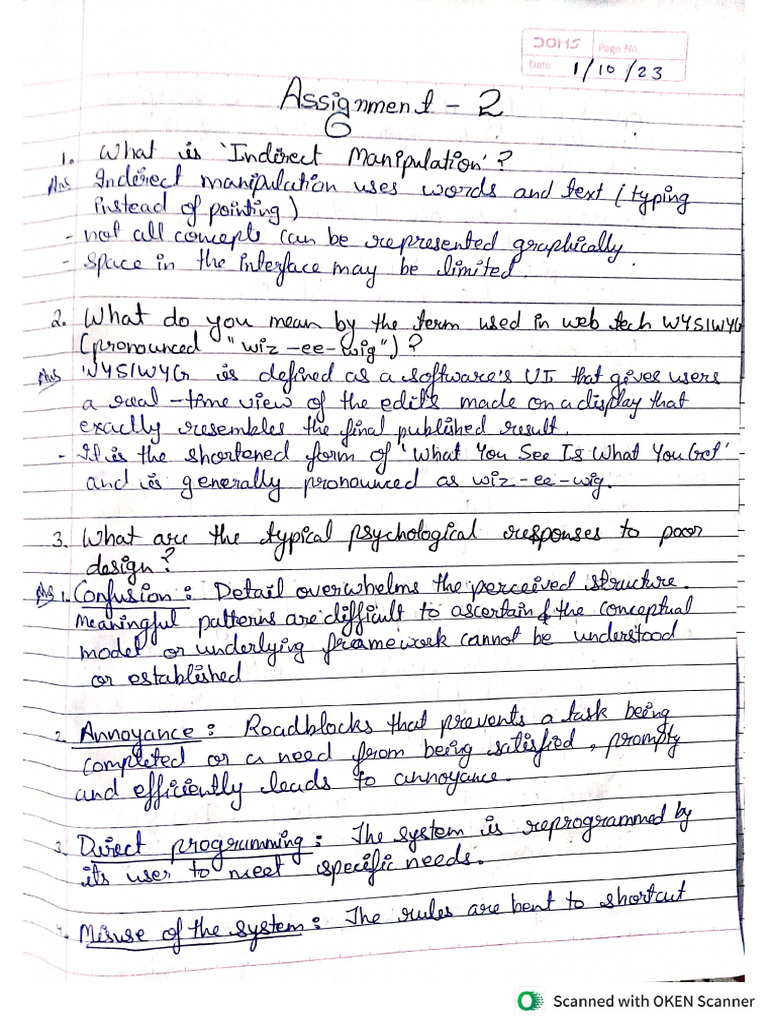 DOMS
Page No.
Date 1/10/23
Assignment - 2
1. What is 'Indirect Manipulation'?
Ans Indirect manipulation uses words and text (typing
instead of pointing)
- not all concepts can be represented graphically
- Space in the interface may be limited.
2. What do you mean by the term used in web tech WYSIWYG
(pronounced "wiz-ee-wig")?
Ans WYSIWYG is defined as a software's UI that gives users
a real-time view of the edits made on a display that
exactly resembles the final published result.
- It is the shortened form of 'What You See Is What You Get'
and is generally pronounced as wiz-ee-wig.
3. What are the typical psychological responses to poor
design?
Ans 1. Confusion: Detail overwhelms the perceived structure.
Meaningful patterns are difficult to ascertain & the conceptual
model or underlying framework cannot be understood
or established
2. Annoyance: Roadblocks that prevents a task being
completed or a need from being satisfied, prompty
and efficiently leads to annoyance.
3. Direct programming: The system is reprogrammed by
its user to meet specific needs.
4. Misuse of the system: The rules are bent to shortcut
Scanned with OKEN Scanner